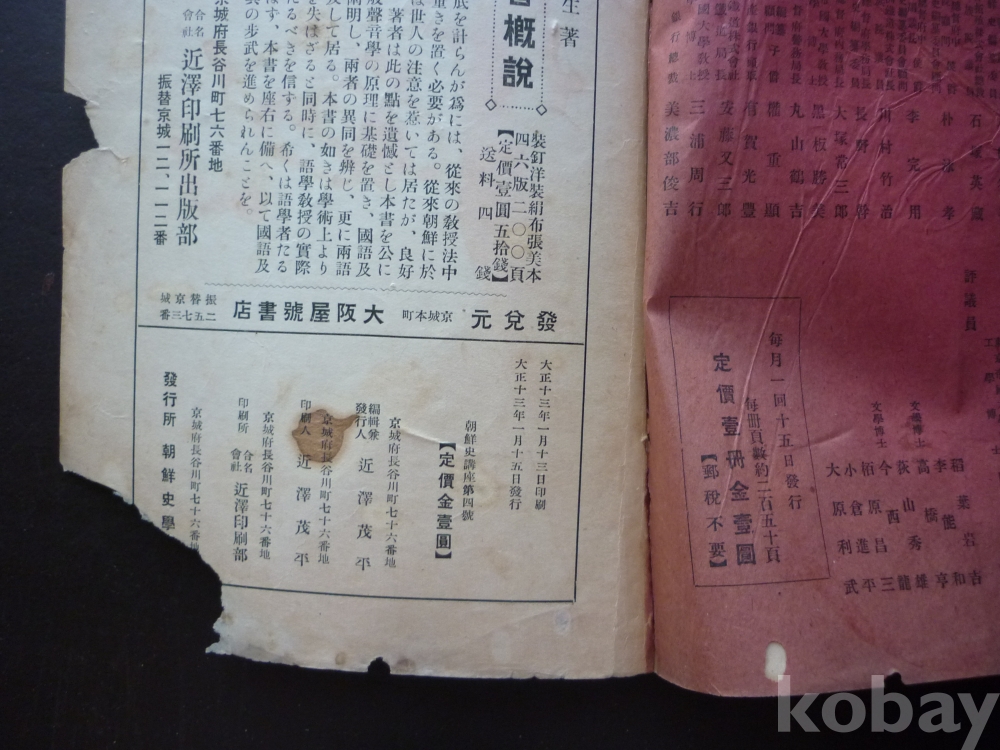 生著
概說
裝釘洋裝絹布張美本
四六版二〇〇頁
【定價壹圓五拾錢】
送料四錢
底を計らんが爲には、從來の敎授法中
重きを置く必要がある。從來朝鮮に於
は世人の注意を惹いては居たが、良好
著者は此の點を遺憾とし本書を公に
般聲音學の原理に基礎を置き、國語及
闡明し、兩者の異同を辨じ、更に兩語
及して居る。本書の如きは學術上より
を失はざると同時に、語學敎授の實際
たるべきを信ずる。希くは語學者たる
はず、本書を座右に備へ、以て國語及
の步武を進められんことを。
京城府長谷川町七六番地
合名會社 近澤印刷所出版部
振替京城一二、一一二番
發兌元 京城本町 大阪屋號書店 振替京城二五七三番
大正十三年一月十三日印刷
大正十三年一月十五日發行
朝鮮史講座第四號
【定價金壹圓】
京城府長谷川町七十六番地
編輯兼發行人 近澤茂平
京城府長谷川町七十六番地
印刷人 近澤茂平
京城府長谷川町七十六番地
印刷所 合名會社 近澤印刷部
京城府長谷川町七十六番地
發行所 朝鮮史學
李完用
川村竹治
長野幹
大塚常三郎
黑板勝美
丸山鶴吉
權重顯
有賀光豐
安藤又三郎
三浦周行
美濃部俊吉
評議員
稻葉岩吉
李能和
高橋亨
文學博士
荻山秀雄
今西龍
文學博士
栢原昌三
小倉進平
大原利武
每月一回十五日發行
每冊頁數約二百五十頁
定價壹冊金壹圓
【郵稅不要】
kobay